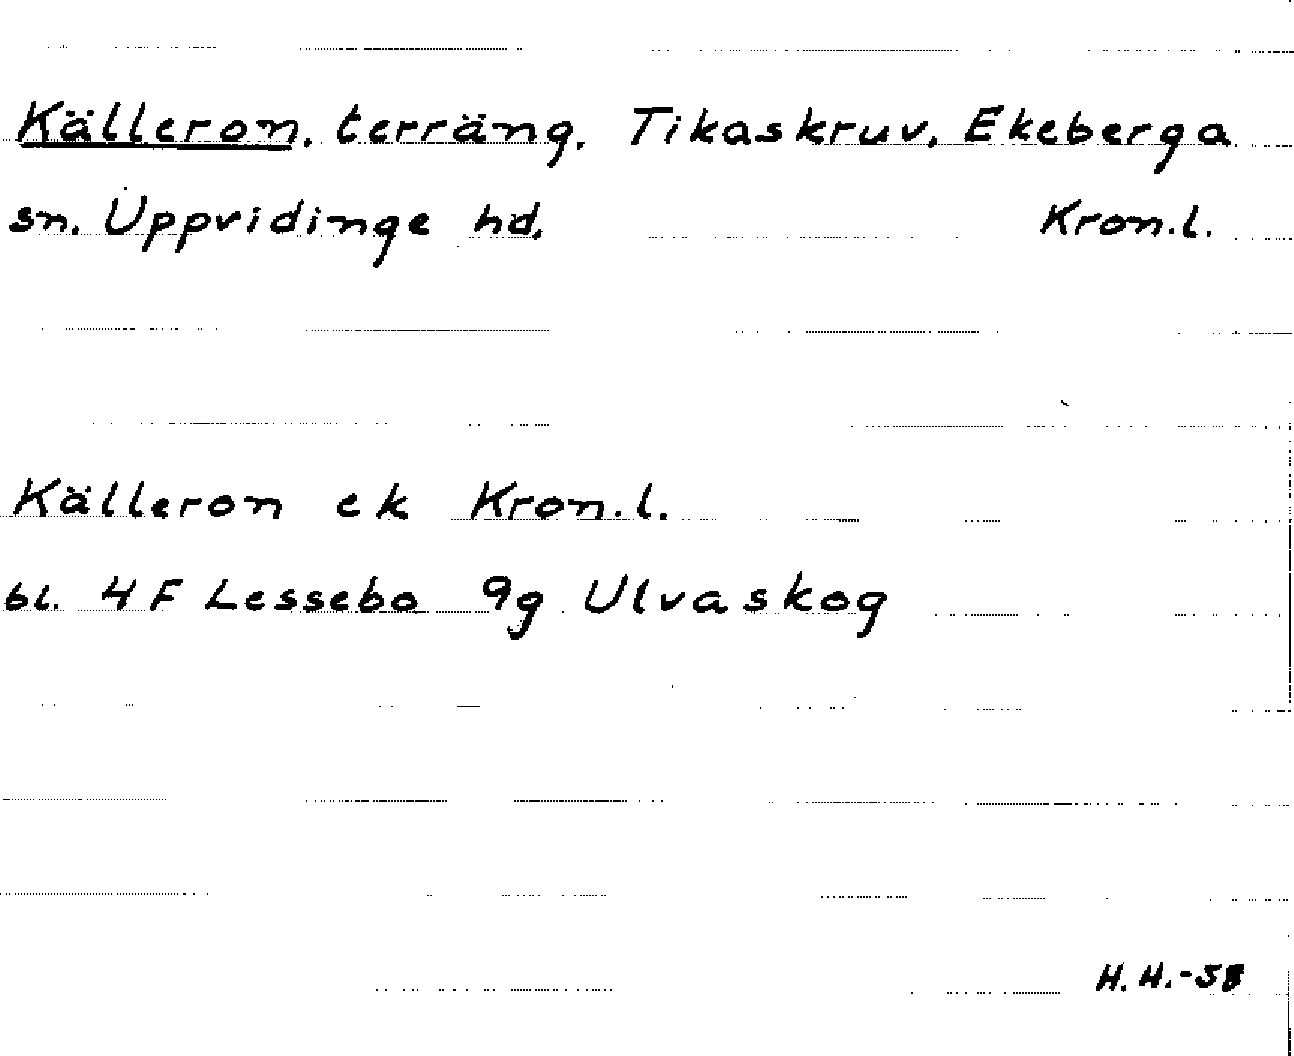 Källeron, terräng, Tikaskruv, Ekeberga
sn. Uppvidinge hd, Kron.l.
Källeron ek Kron.l.
bl. 4F Lessebo 9g Ulvaskog
H.H.-58